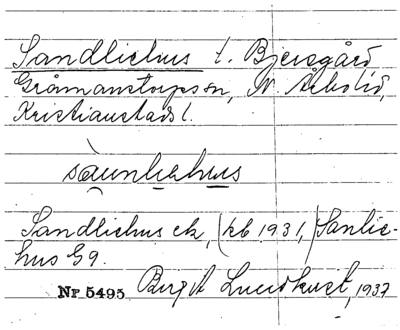 Sandliehus t. Bjersgård
Gråmanstorps sn, N. Åsbo hd,
Kristianstads l.
saunliehus
Sandliehus ek, (kb 1931,) Sanlie-
hus G9.
Nr 5495 Birgit Lundkvist, 1937